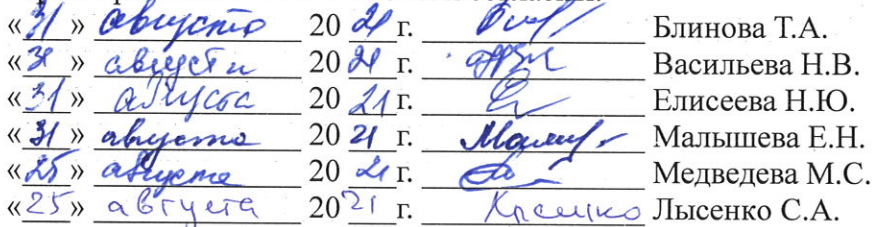 «31» августа 2021 г. Блинова Т.А.
«31» августа 2021 г. Васильева Н.В.
«31» августа 2021 г. Елисеева Н.Ю.
«31» августа 2021 г. Малышева Е.Н.
«25» августа 2021 г. Медведева М.С.
«25» августа 2021 г. Лысенко С.А.